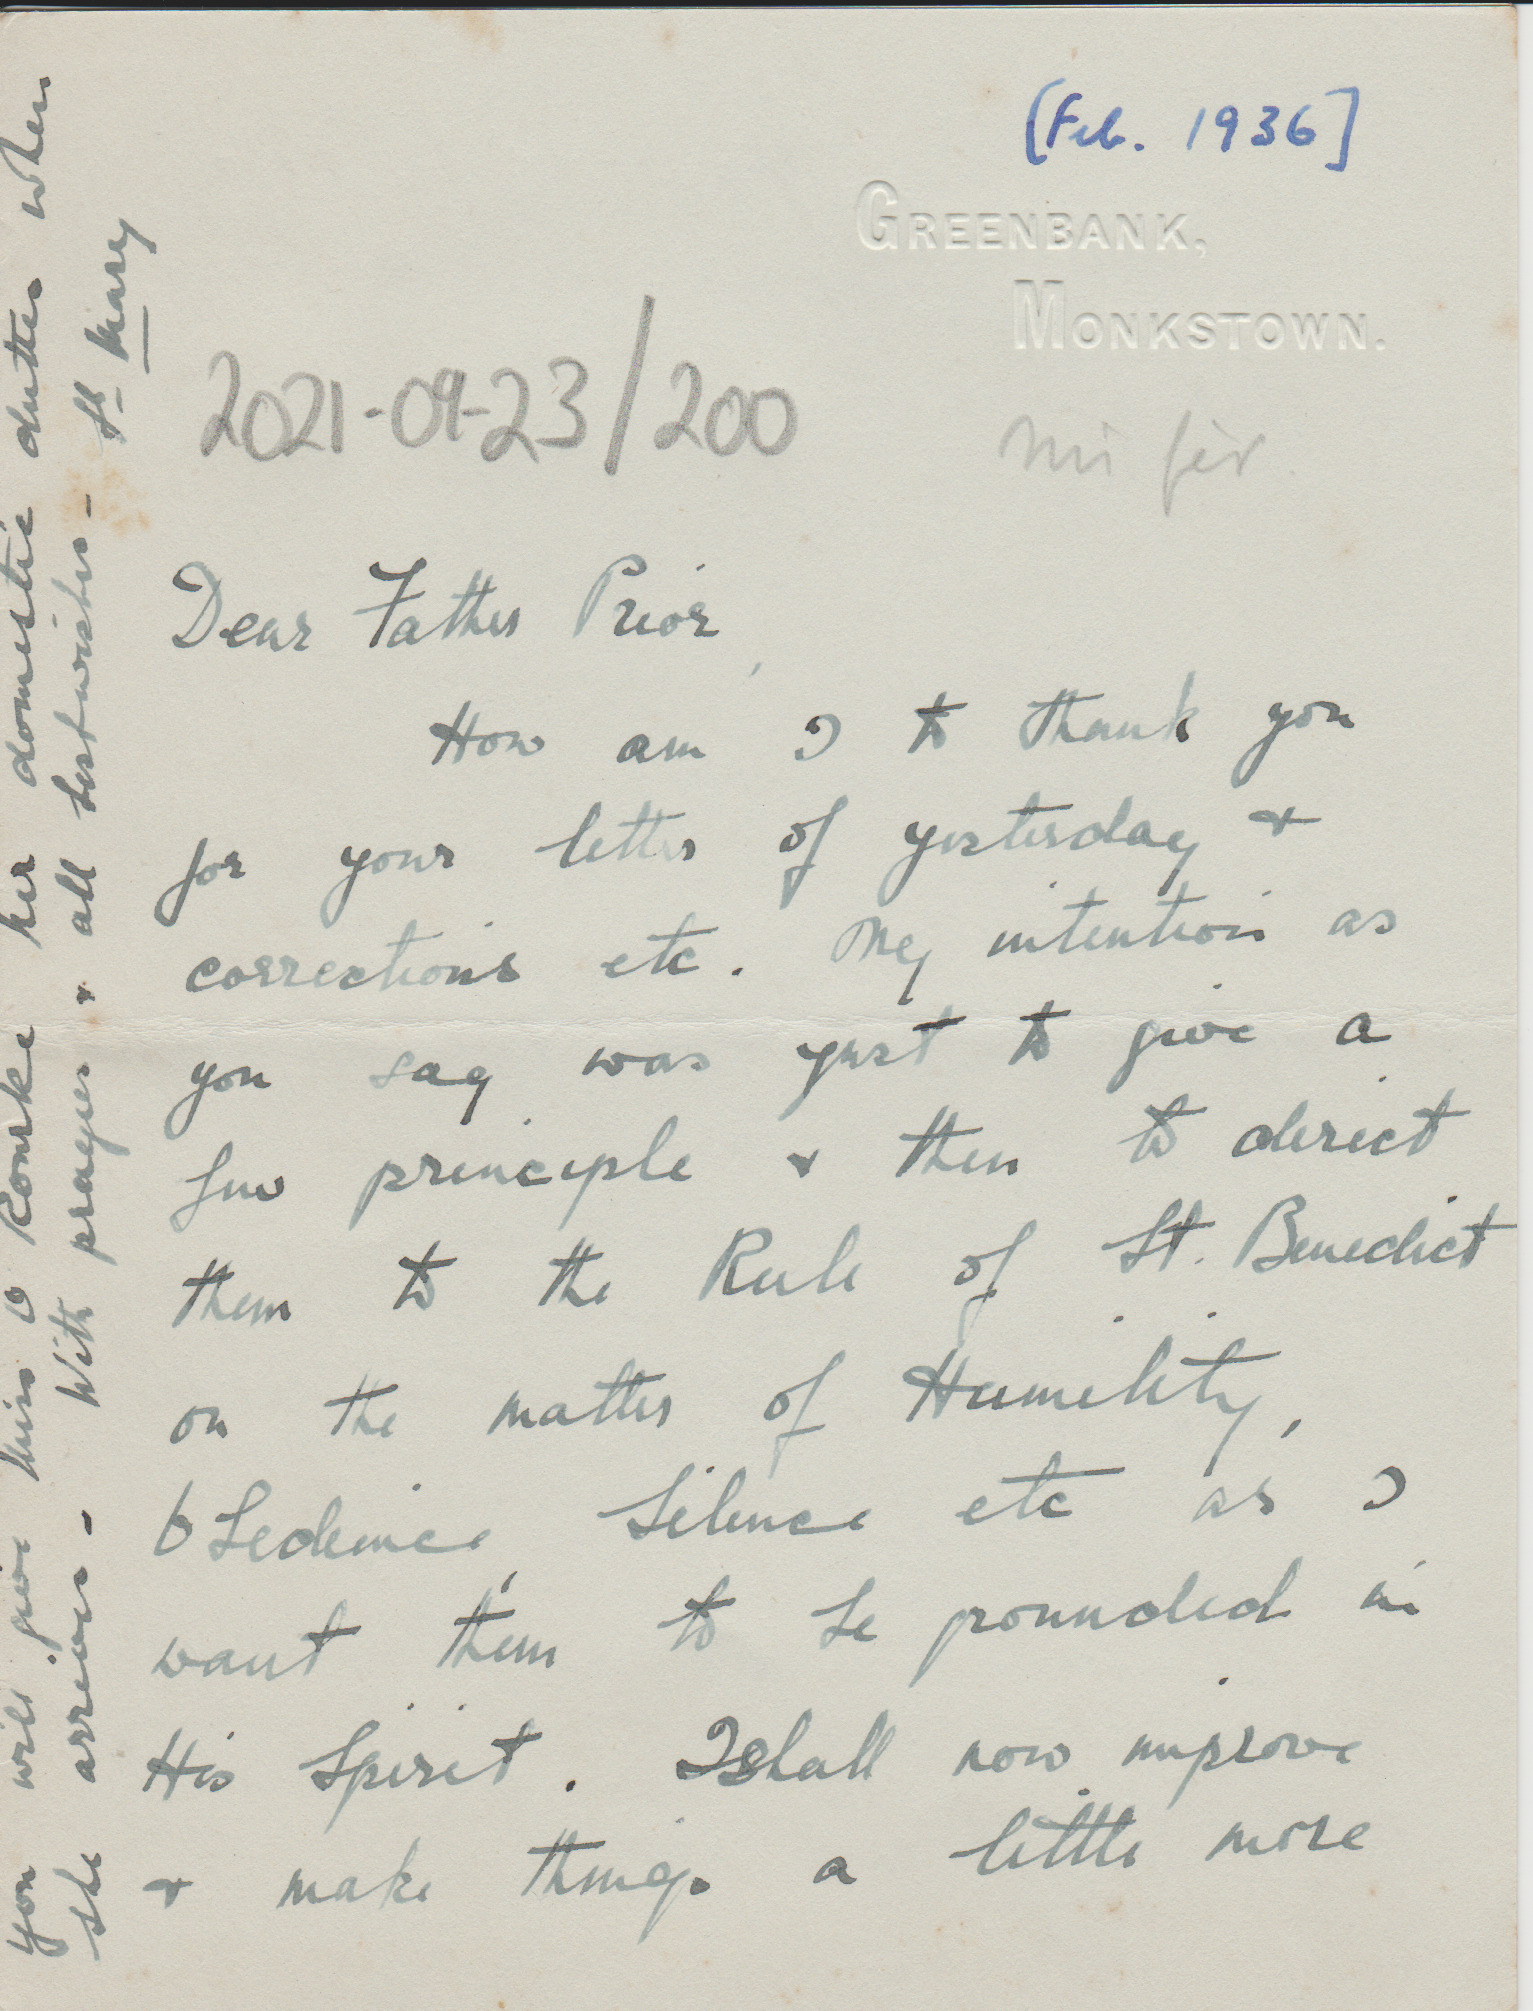 [Feb. 1936]
GREENBANK,
MONKSTOWN.
2021-09-23/200
Dear Father Prior,
How am I to thank you
for your letter of yesterday &
corrections etc. My intention as
you say was just to give a
few principle & then to direct
them to the Rule of St. Benedict
on the matter of Humility,
Obedience, Silence etc as I
want them to be grounded in
His Spirit. I shall now improve
& make things a little more
you will give Miss O Rourke her domestic duties when
she arrives - With prayers & all best wishes - Sr Mary